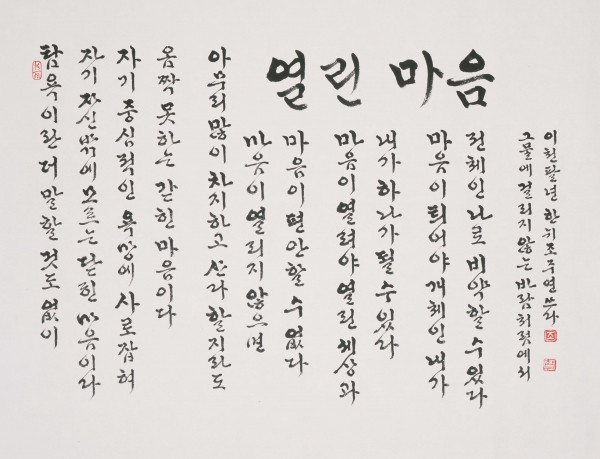 열린 마음
탐욕이란 더 말할 것도 없이
자기 자신밖에 모르는 닫힌 마음이라
자기 중심적인 욕망에 사로잡혀
옴짝 못하는 갇힌 마음이다
아무리 많이 차지하고 산다 할지라도
마음이 열리지 않으면
마음이 편안할 수 없다
마음이 열려야 열린 세상과
내가 하나가 될 수 있다
마음이 틔어야 개체인 내가
전체인 나로 비약할 수 있다
그물에 걸리지 않는 바람처럼에서
이천팔년 한뫼 조주연 쓰다